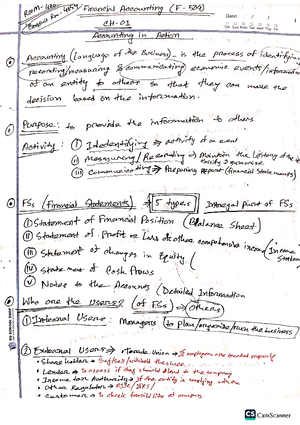 Financial Accounting (F-504)
CH-01
Accounting in Action
Accounting (language of the Business) - is the process of identifying
recording/measuring & communicating economic events/information
of an entity to others so that they can make the
decision based on the information.
Purpose: to provide the information to others.
Activity: (i) Identifying → activity of an event
(ii) Measuring/Recording → Maintain the history of
(iii) Communicating → Preparing report (financial statements)
FSs (Financial Statements) → 5 types Integral part of FSs
(i) Statement of Financial Position (Balance Sheet)
(ii) Statement of Profit or Loss & other comprehensive income (Income
(iii) Statement of changes in Equity
(iv) Statement of Cash flows
(v) Notes to the Accounts (Detailed Information
Who are the users? (of FSs) → Others
(1) Internal Users: Managers to plan/organize/run the business
(2) External Users → Trade Union → If employees are treated properly
Shareholder → Buy/sell/withhold the share
Lender → to assess if they should lend to the company
Income tax Authority → If the entity is complying
Other Regulator →
Customer → to check feasibility of company
CS CamScanner